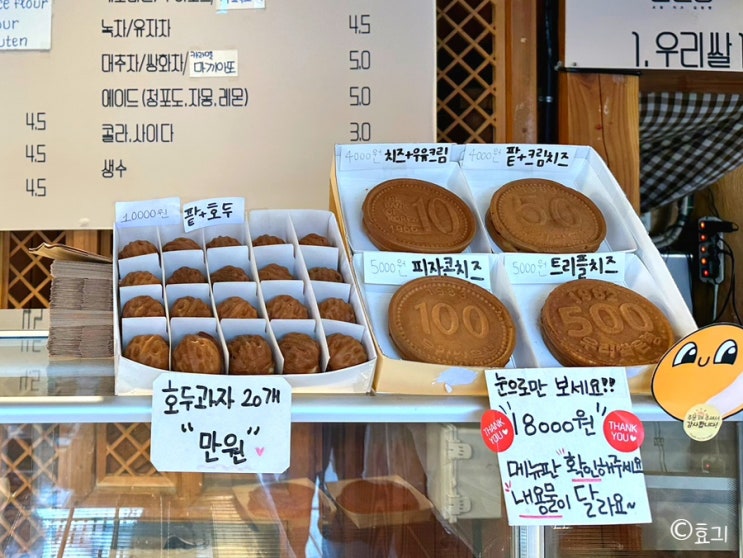 flour
our
uten
녹차/유자차 4.5
대추차/쌍화차/ 카라멜 마끼아또 5.0
에이드(청포도,자몽,레몬) 5.0
콜라,사이다 3.0
생수
4.5
4.5
4.5
1. 우리쌀
10000원 팥+호두
4000원 치즈+우유크림
4000원 팥+크림치즈
5000원 피자콘치즈
5000원 트리플치즈
10
1966
50
100
1982
500
호두과자 20개
"만원"
눈으로만 보세요!!
THANK YOU
"18000원"
THANK YOU
메뉴판 확인해주세요
내용물이 달라요~
감사합니다!
©효긔